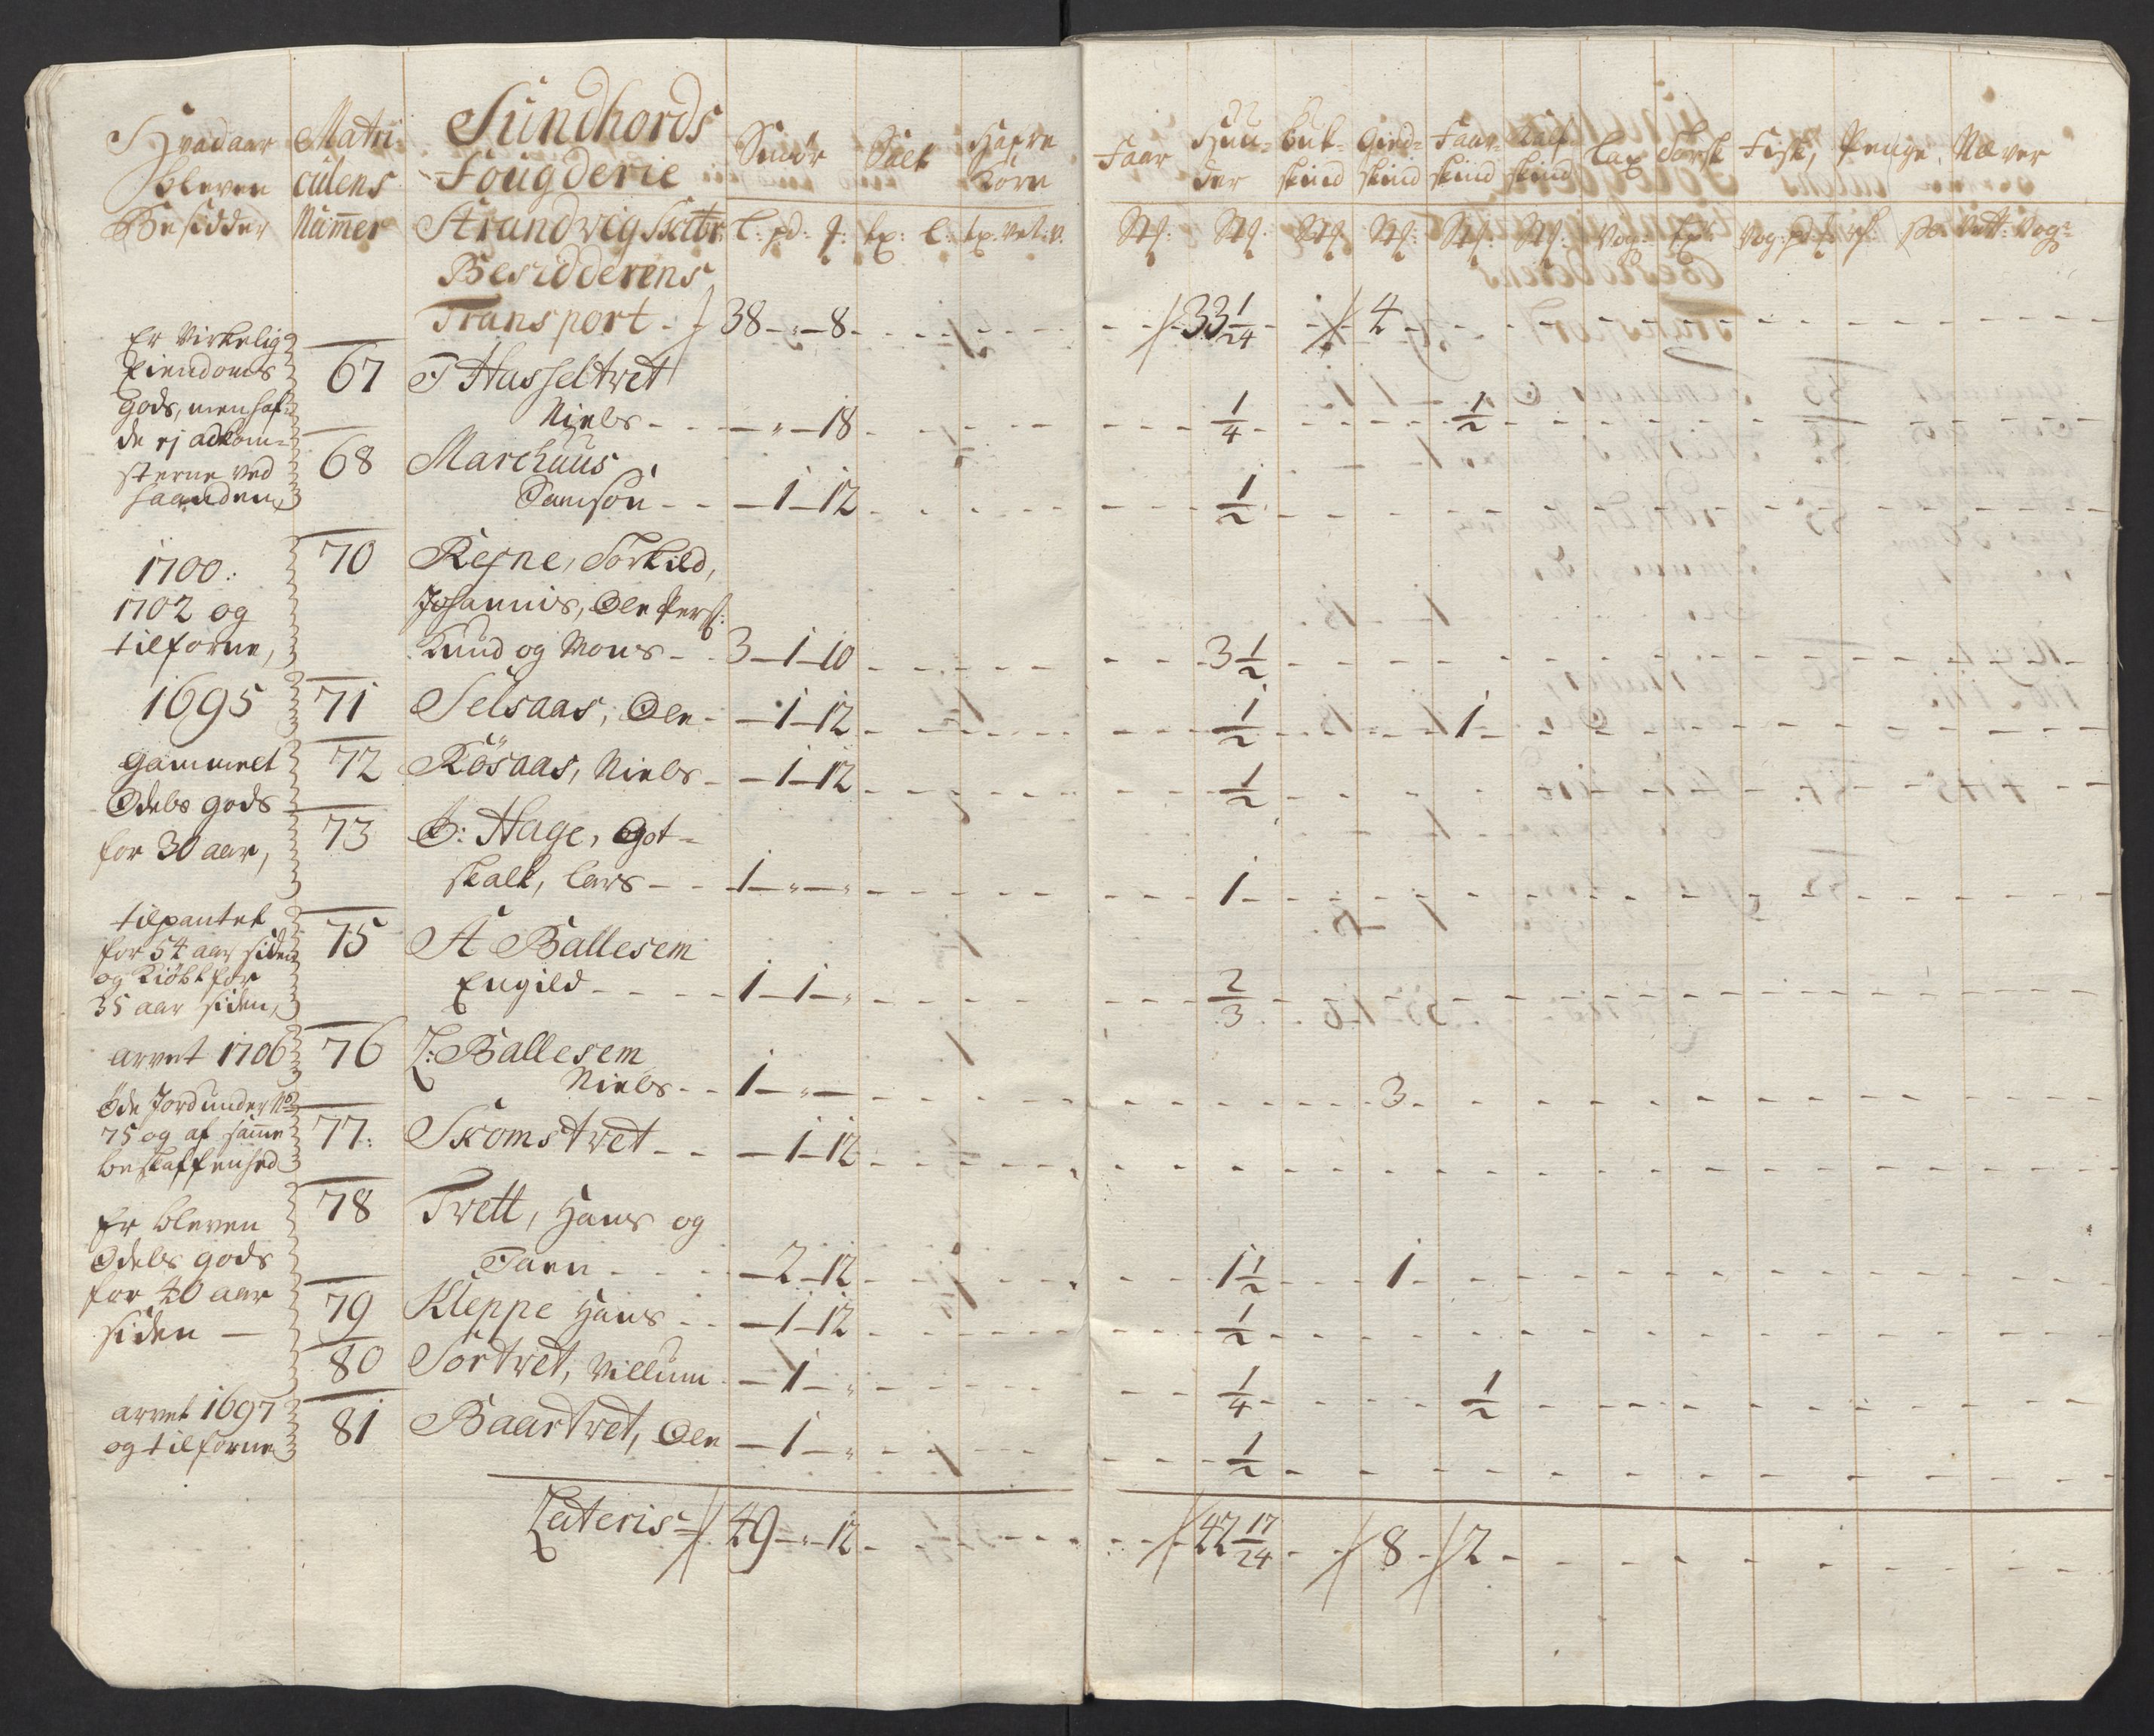 Hvad aar
bleven
Besidder
Matri-
culens
Num̄er
Sundhords
Fougderie
Strandvig Skibr:
Besidderens
Smör
Salt
Hafre
Korn
L: pd: : tp: L: tp. vet: v:
Faar Huu- Buk- Gied- Faar- Kalf- Lax Törsk Fisk, Penge, Næver
der skind skind skind skind
Stf: Stf: Stf: Stf: Stf: Stf: Vog: Tp: Vog: pd:
Transport - 38 - " - 8 - 33 1/24 - 4
Er Virkelig
Eiendoms
Gods, men haf-
de ej adkom-
sterne ved
haanden,
67 T Hasseltvet
Niels - " - 18 - 1/4 - 1/2
68 Markhuus
Samson - 1 - 12 - 1/2
1700:
1702 og
tilforne,
70 Refne, Torkild,
Johannis, Ole Pers:
Knud og Mons - 3 - 1 - 10 - 3 1/2
1695 71 Selsaas, Ole - 1 - 12 - 1/2 - 1
gammelt
Odels gods
for 30 aar,
72 Rösaas, Niels - 1 - 12 - 1/2
73 Ö: Hage, Got-
skalk, Lars - 1 - " - " - 1
tilpantet
for 54 aar siden
og Kiöbt for
35 aar siden,
75 A Ballesem
Engild - 1 - 1 - " - 2/3
arvet 1706 76 Z: Ballesem
Niels - 1 - " - 3
Öde Jord under No
75 og af sam̄e
beskaffenhed
77: Skomstvet - 1 - 12
Er bleven
Odels gods
for 40 aar
siden -
78 Tvett, Hans og
Faen - 2 - 12 - 1 1/2 - 1
79 Kleppe Hans - 1 - 12 - 1/2
80 Sörtvet, Villum - 1 - " - 1/4 - 1/2
arvet 1697
og tilforne
81 Baartvet, Ole - 1 - " - 1/2
Lateris 49 - " - 12 - 42 17/24 - 8 - 2